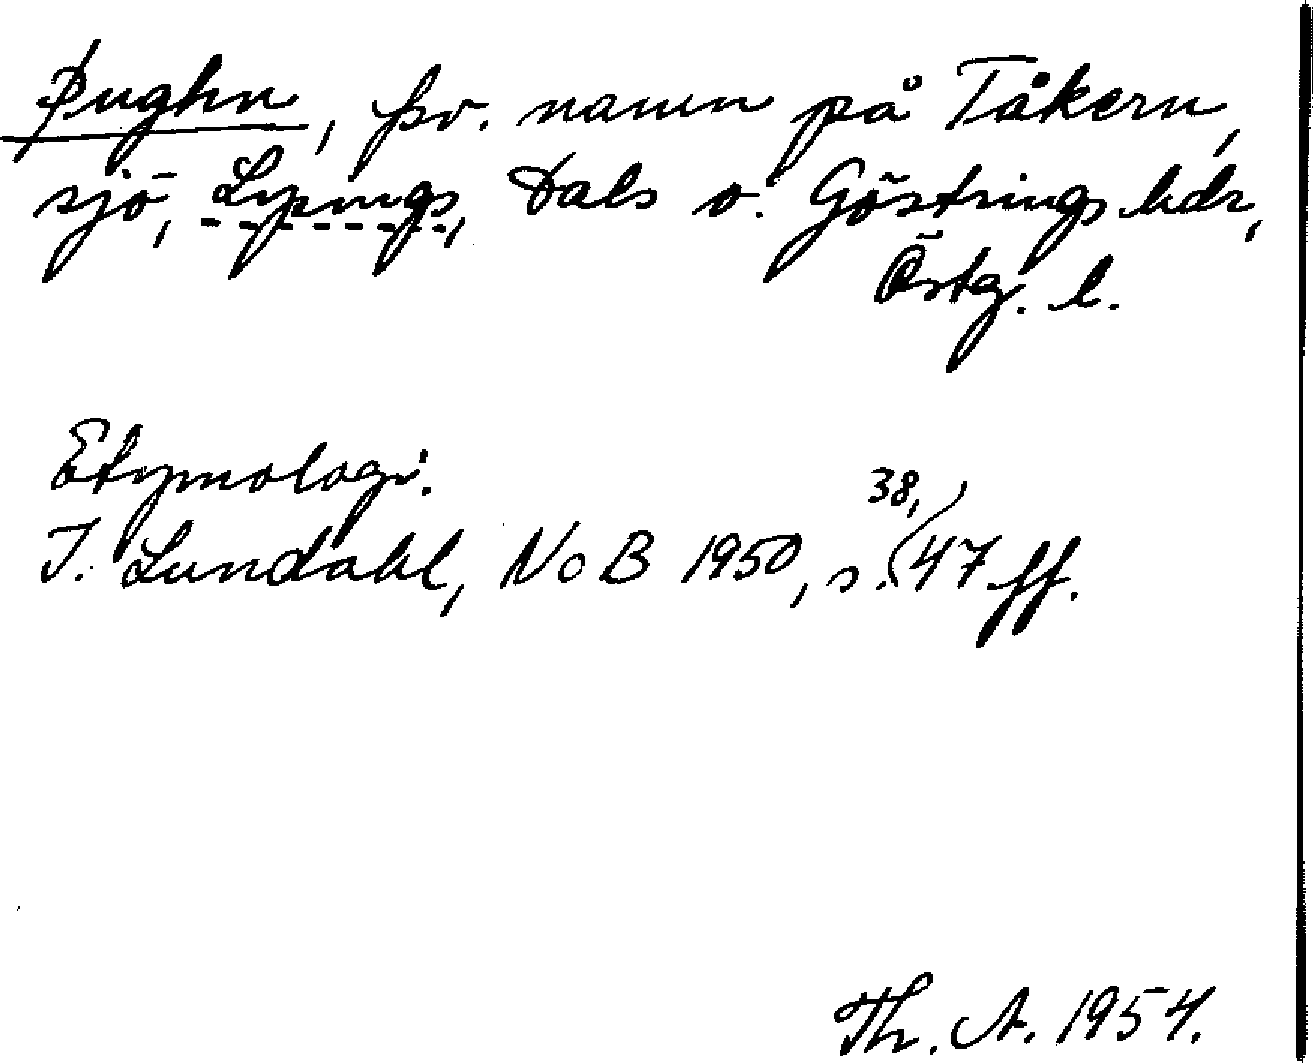 Þughn, fsv. namn på Tåkern,
sjö, Lysings, Dals o. Göstrings hdr,
Östg. l.
Etymologi.
I. Lundahl, NoB 1950, s. (38,) 47 ff.
Th. A. 1954.